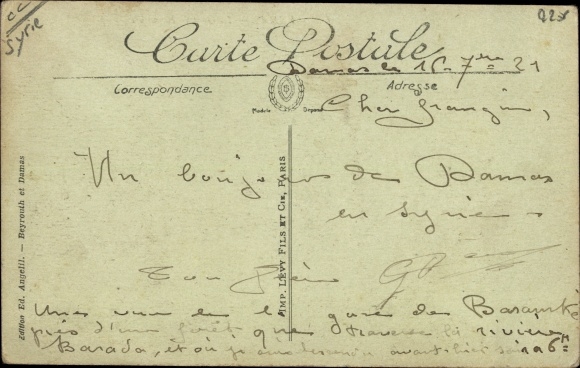 Syrie
Carte Postale
Damas le 16-7-21
Correspondance
Adresse
Modèle Déposé
Cher frangin,
Un bonjour de Damas
en Syrie
Ton frère
Une vue de la gare de Baramké
près d'une forêt que traverse la rivière
Barada, et où je suis descendu avant hier soir à 6H
Edition Ed. Angelil. — Beyrouth et Damas
IMP. LÉVY FILS ET CIE, PARIS